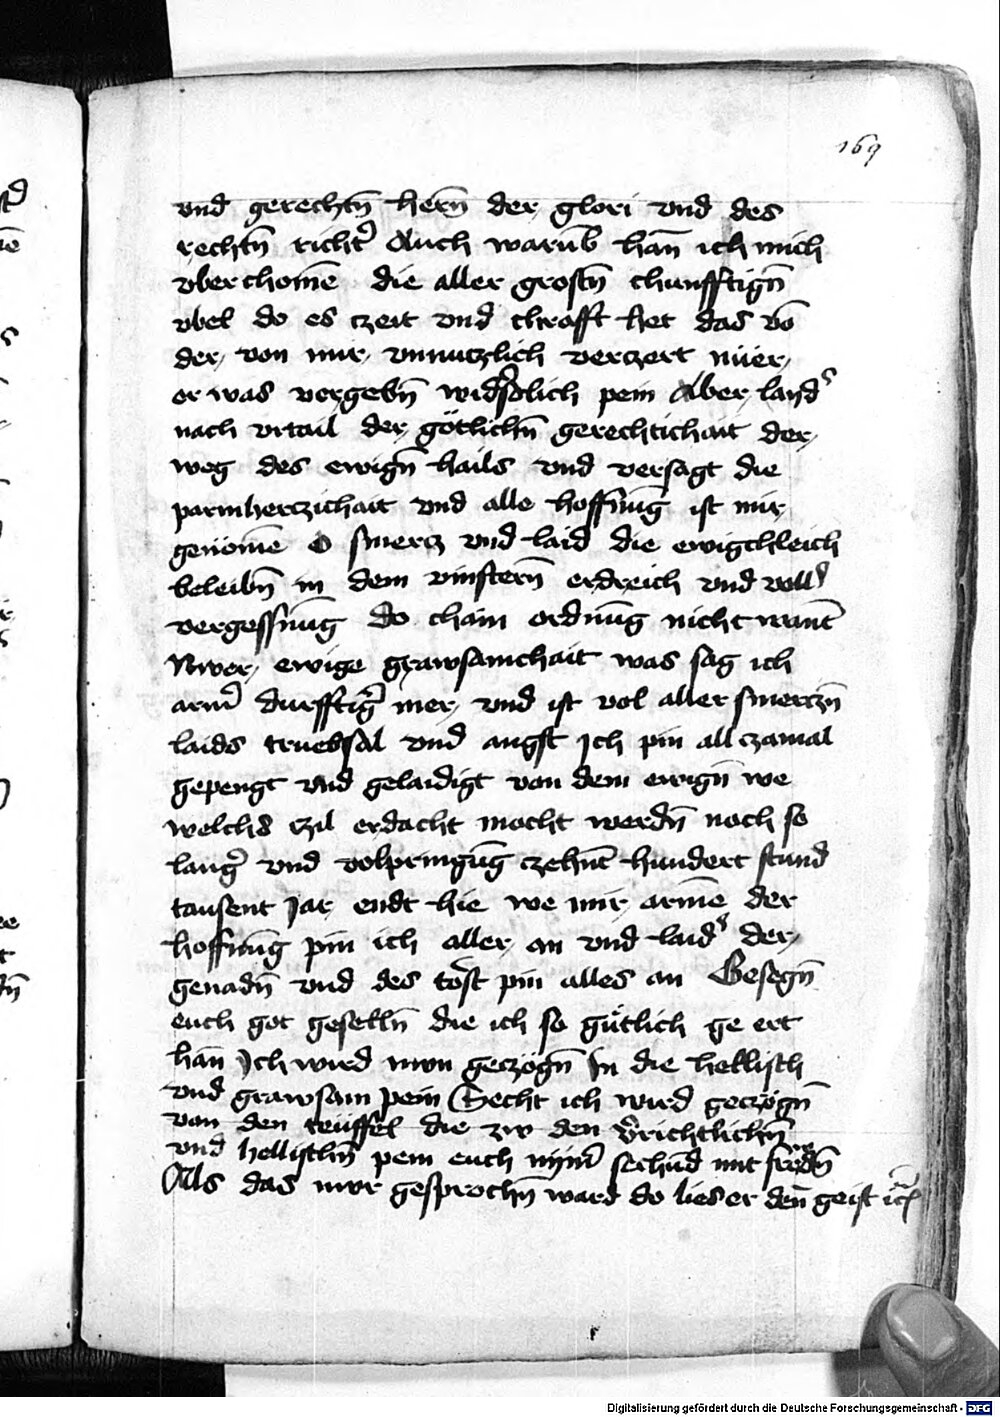 169
vnd gerechtn̄ hern̄ der glori vnd des
rechtn̄ richt̾ Auch warūb han̄ ich mich
vberchomē die aller grostn̄ chunfftign̄
vbel do es czeit vnd chrafft het das vō
der von mir vnnutzlich verczert nüer
er was vergebn̄ pein Aber laid̾
nach vrtail der götlichn̄ gerechtichait der
weg des ewign̄ hails vnd versagt die
parmherczichait vnd alle hoffnūg ist mir
genomē O smercz vnd laid die ewigchleich
beleibn̄ in dem vinstern̄ erdreich vnd voll̾
vergessnūg do chain ordnūg nicht want̄
Nwer ewige grawsamchait was sag ich
arm̾ durfftig̾ mer vnd ist vol aller smerczn̄
laids truebsal vnd angst Ich pin allczamal
gepengt vnd gelaidigt von dem ewign̄ we
welchs czil erdacht mocht werdn̄ noch so
lang̾ vnd volpringūg czehn̄t hundert stund
tausent Jar endt hie we mir armē der
hoffnūg pin ich aller an vnd laid̾ der
genadn̄ vnd des trost pin alles an Gesegn̄
euch got geselln̄ die ich so gütlich ge ert
han̄ Ich wird nwn geczogn̄ In die hellisch
vnd grawsam pein Secht ich wird geczogn̄
von den teüffel die zw den v̾richtlichn̄
vnd hellischn̄ pein euch nym̾ sechūd mit frewdn̄
Als das nwr gesprochn̄ ward do lies er den̄ geist
Digitalisierung gefördert durch die Deutsche Forschungsgemeinschaft - DFG